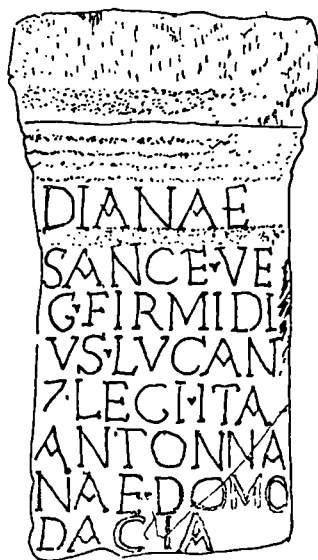 DIANAE
SANCE·VE
G·FIRMIDI
VS·LVCAN
7·LEGI·ITA
ANTONNA
NAE·DOMO
DACIA